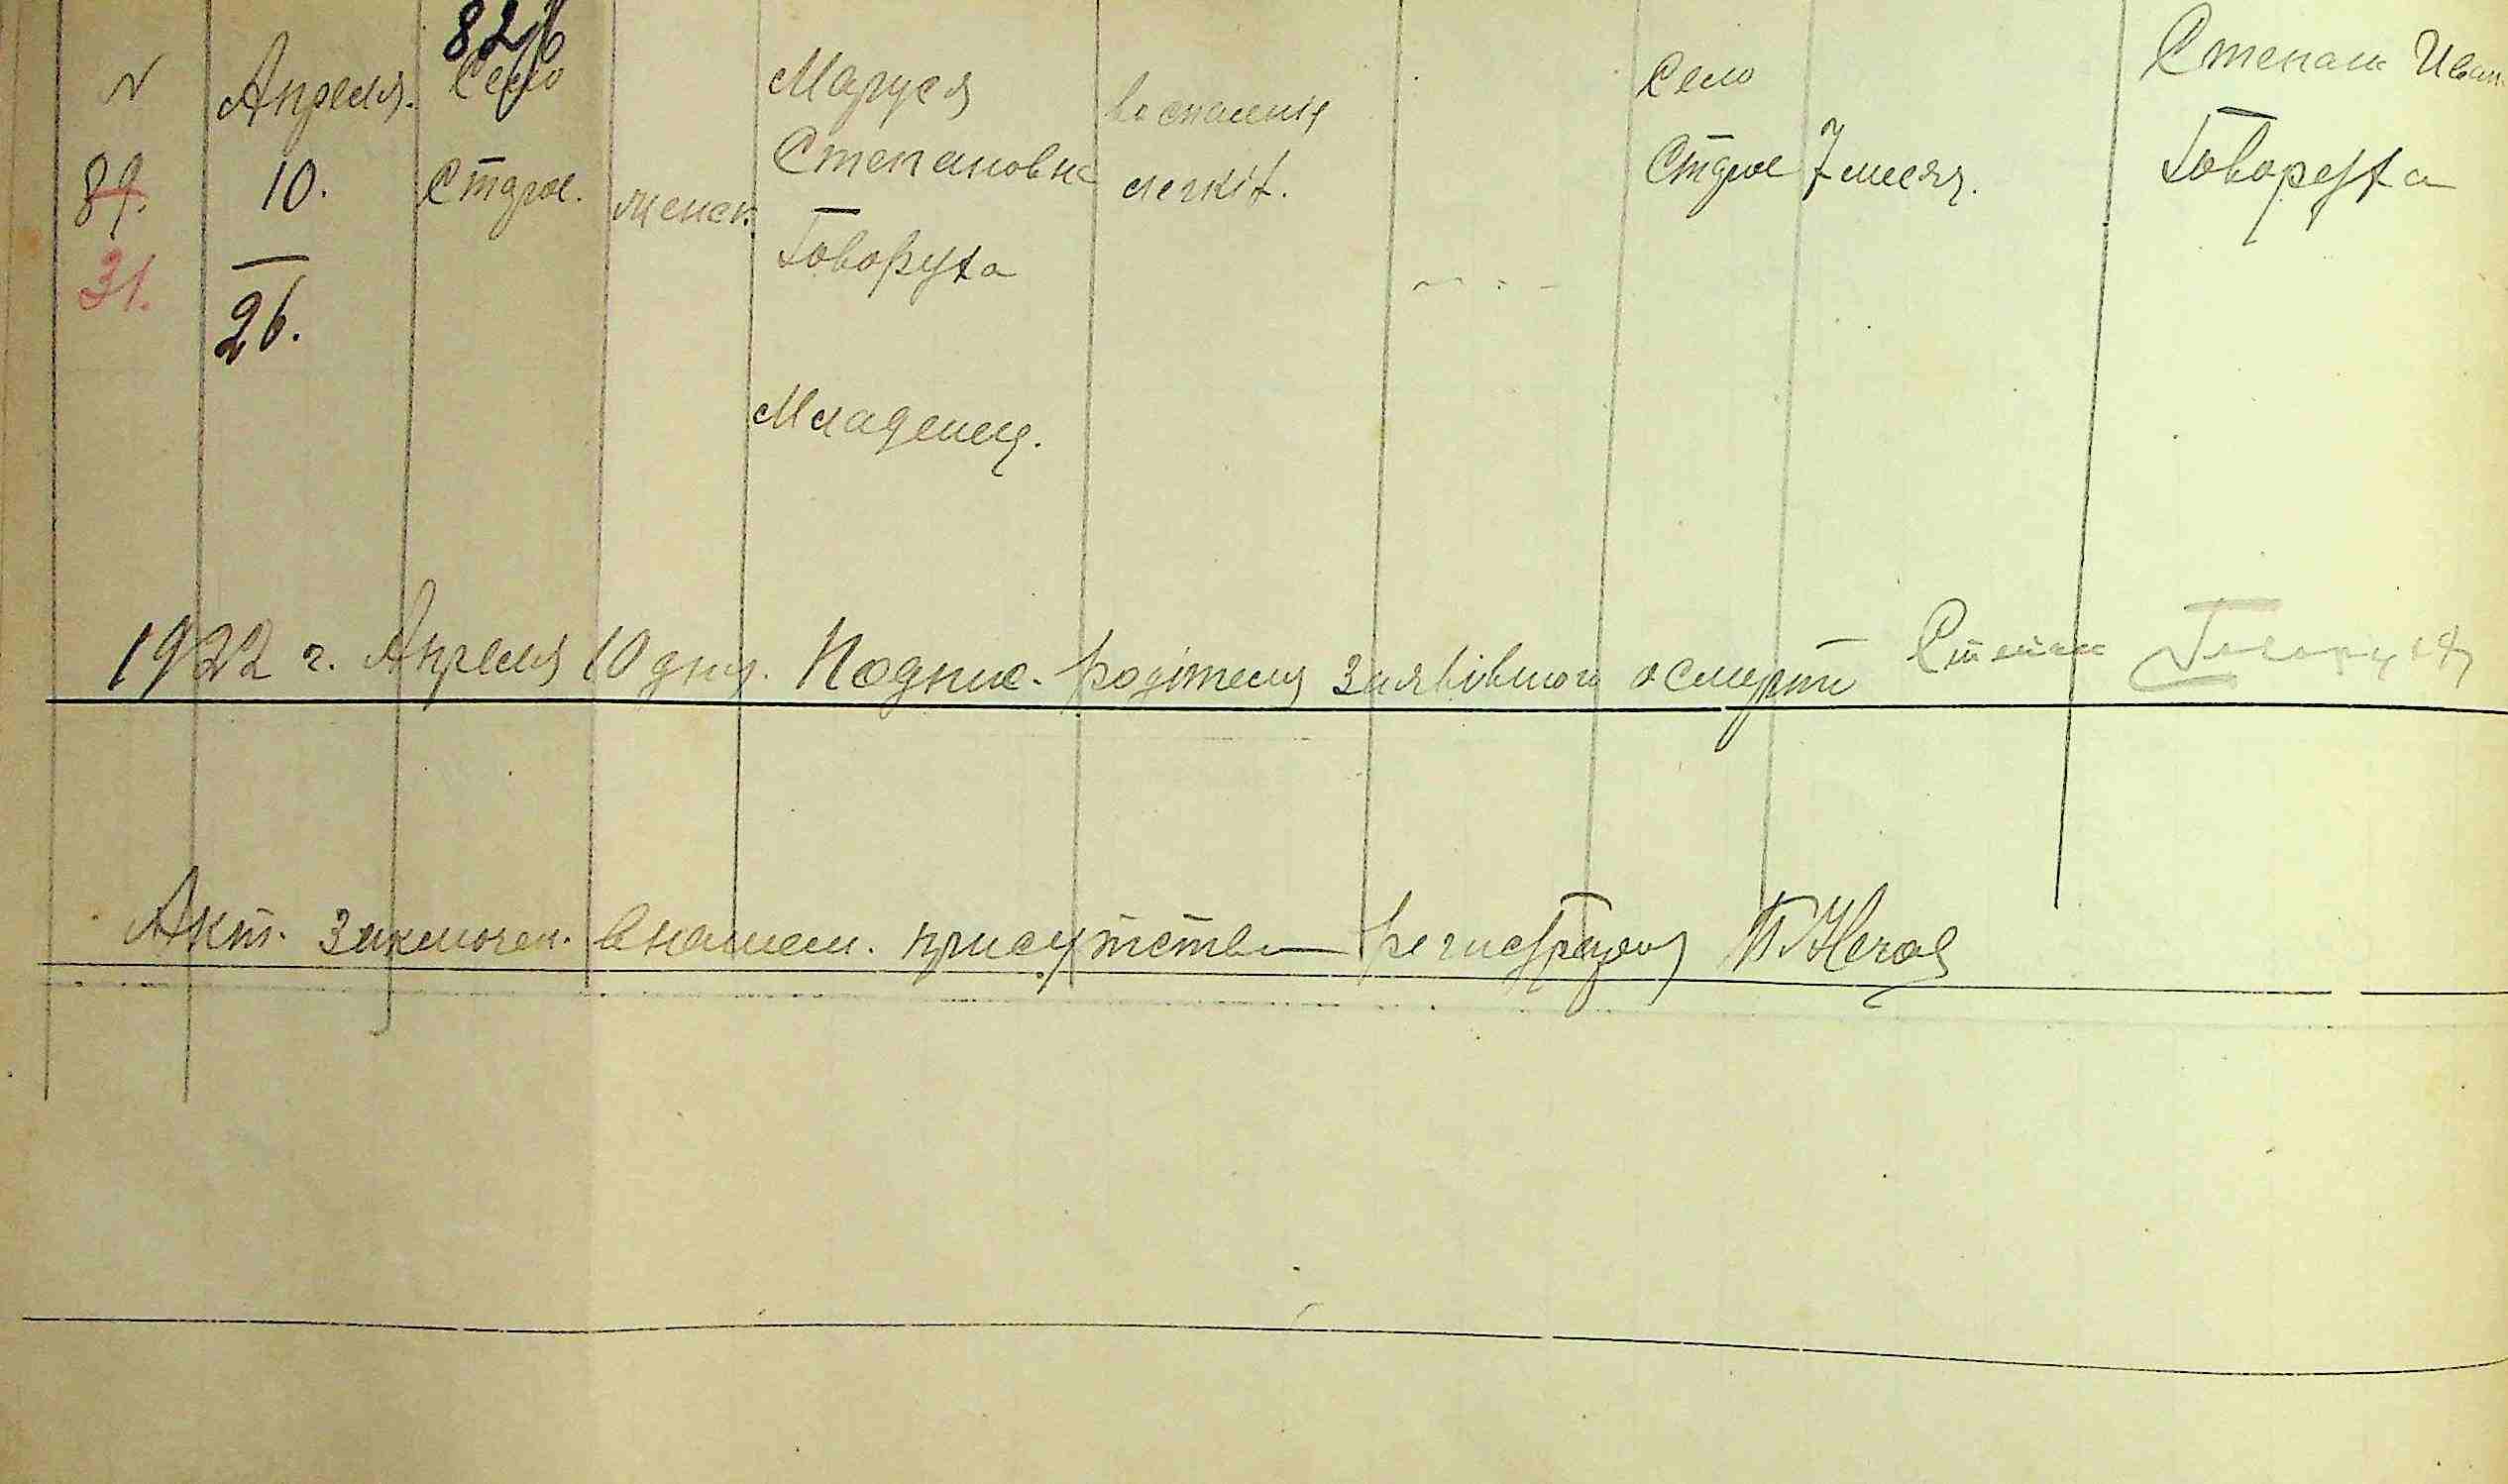 82
N
89.
31.
Апреля.
10.
26.
Село
Старое.
женск.
Маруся
Степановна
Говоруха
Младенец.
воспаления
легкіх.
Село
Старое
7 месяц.
Степан Иван
Говоруха
1922 г. Апреля 10 дня. Подпис. родителя заявівшого о смерти Степан Говоруха
Акт. заключен. в нашем. присутствии регистратор